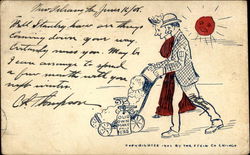 New Orleans La June 16/05.
Well Stanley how are things
coming down your way
Certainly miss you. May be
I can arrange to spend
a few months with you
next winter
COPYRIGHTED 1905 BY THE STEIN CO CHICAGO